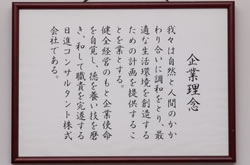 企業理念
我々は自然と人間のかか
わり合いに調和をとり、最
適な生活環境を創造する
ための計画を提供するこ
とを業とする。
健全経営のもと企業使命
を自覚し、徳を養い技を磨
き、和して職責を完遂する
日進コンサルタント株式
会社である。